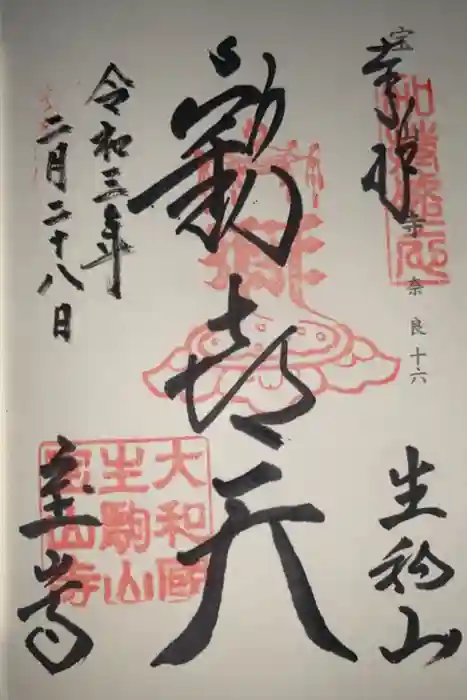 宝山寺 奈良十六
奉拝
生駒山
歓喜天
令和三年
二月二十八日
宝山寺
大和國
生駒山
寳山寺